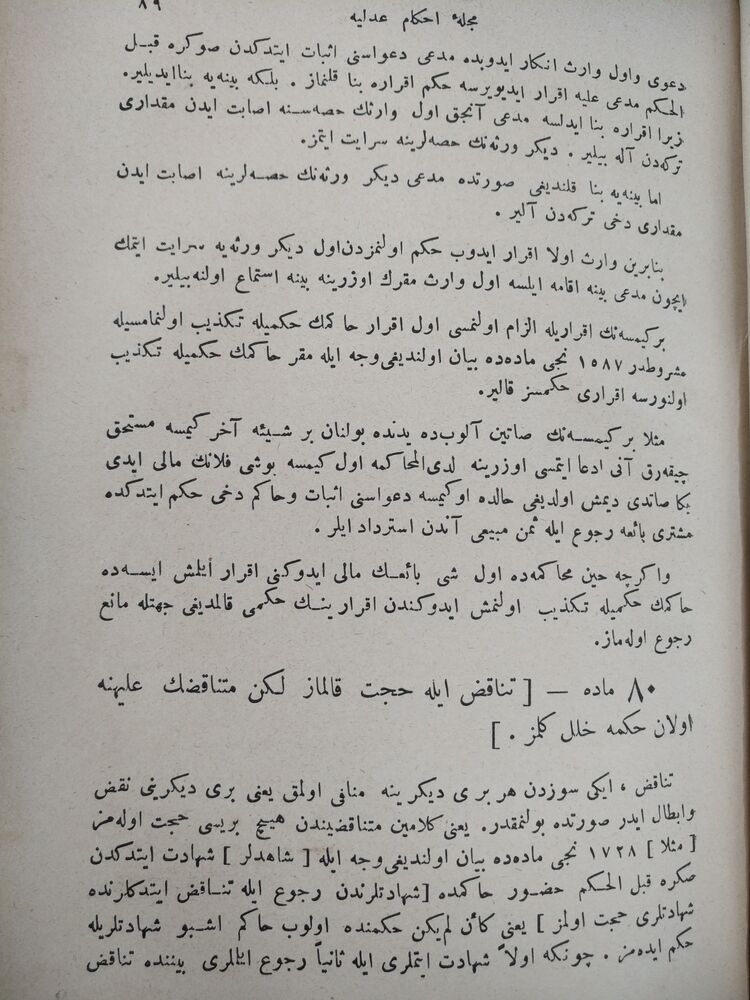 ٨٩
مجلهٔ احكام عدليه
دعوى واول وارث انكار ايدوبده مدعى دعواسنى اثبات ايتدكدن صوكره قبـل
الحكم مدعى عليه اقرار ايديويرسه حكم اقراره بنا قلنماز . بلكه بينه‌يه بناايديلير.
زيرا اقراره بنا ايدلسه مدعى آنجق اول وارثك حصه‌سـنه اصابت ايدن مقدارى
تركه‌دن آله بيلير . ديكر ورثه‌نك حصه‌لرينه سرايت ايتمز.
اما بينه‌يه بنا قلنديغى صورتده مدعى ديكر ورثه‌نك حصـه‌لرينه اصابت ايدن
مقدارى دخى تركه‌دن آلير .
بنابرين وارث اولا اقرار ايدوب حكم اولنمزدن‌اول ديكر ورثه‌يه سرايت ايتمك
ايچون مدعى بينه اقامه ايلسه اول وارث مقرك اوزرينه بينه استماع اولنه‌بيلير.
بركيمسه‌نك اقراريله الزام اولنمسى اول اقرار حاكمك حكميله تكذيب اولنمامسيله
مشروطدر ١٥٨٧ نجى ماده‌ده بيان اولنديغى‌وجه ايله مقر حاكمك حكميله تكذيب
اولنورسه اقرارى حكمسز قالير.
مثلا بر كيمسـه‌نك صاتين آلوب‌ده يدنده بولنان بر شـيئه آخر كيمسه مستحق
چيقه‌رق آنى ادعا ايتمسى اوزرينه لدى‌المحاكمه اول كيمسه بوشى فلانك مالى ايدى
بكا صاتدى ديمش اولديغى حالده اوكيمسه دعواسنى اثبات وحاكم دخى حكم ايتدكده
مشترى بائعه رجوع ايله ثمن مبيعى آندن استرداد ايلر .
واكرچه حين محاكمه‌ده اول شى بائعـك مالى ايدوكنى اقرار ايلمش ايسـه‌ده
حاكمك حكميله تكذيب اولنمش ايدوكندن اقرارينـك حكمى قالمديغى جهتله مانع
رجوع اوله‌ماز.
٨٠ ماده — [ تناقض ايله حجت قالماز لكن متناقضك عليهنه
اولان حكمه خلل كلمز . ]
تناقض ، ايكى سوزدن هر برى ديكرينه منافى اولمق يعنى برى ديكرينى نقض
وابطال ايدر صورتده بولنمقدر. يعنى كلامين متناقضيندن هيچ بريسى حجت اوله‌مز
[ مثلا ] ١٧٢٨ نجى ماده‌ده بيان اولنديغى‌وجه ايله [ شاهدلر ] شهادت ايتدكدن
صكره قبل الحكم حضـور حاكمده [شهادتلرندن رجوع ايله تنـاقض ايتدكلرنده
شهادتلرى حجت اولمز ] يعنى كأن لم‌يكن حكمنده اولوب حاكم اشـبو شهادتلريله
حكم ايده‌مز . چونكه اولاً شهادت ايتملرى ايله ثانياً رجوع ايتملرى بيننده تناقض